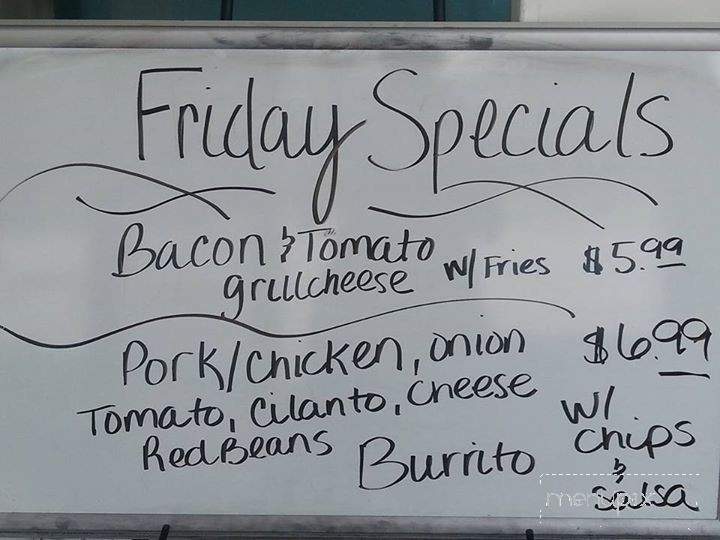 Friday Specials
Bacon & Tomato
grillcheese w/ Fries $5.99
Pork/chicken, onion $6.99
Tomato, Cilanto, Cheese
Red Beans Burrito
w/
chips
&
Salsa
menupix